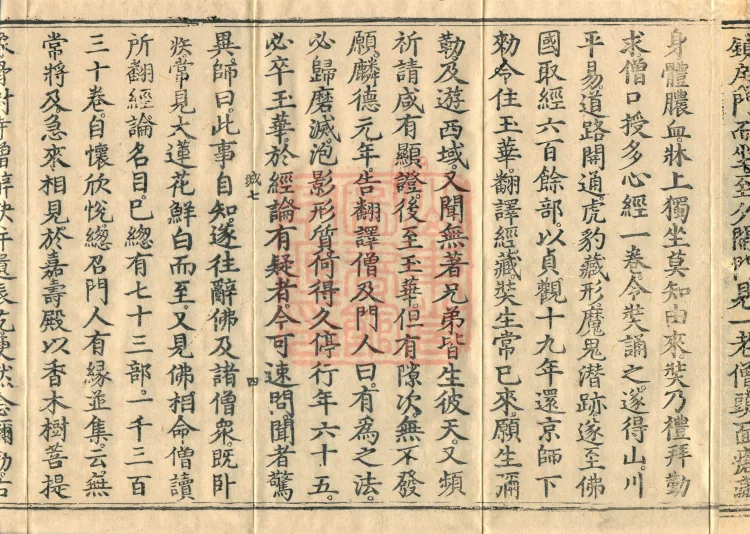 身體膿血牀上獨坐莫知由來奘乃禮拜勤
求僧口授多心經一卷令奘誦之遂得山川
平易道路開通虎豹藏形魔鬼潛跡遂至佛
國取經六百餘部以貞觀十九年還京師下
勑令住玉華翻譯經藏奘生常已來願生彌
勒及遊西域又聞無著兄弟皆生彼天又頻
祈請咸有顯證後至玉華但有隙次無不發
願麟德元年告翻譯僧及門人曰有為之法
必歸磨滅泡影形質何得久停行年六十五
必卒玉華於經論有疑者今可速問聞者驚
異師曰此事自知遂往辭佛及諸僧眾既卧
疾常見大蓮花鮮白而至又見佛相命僧讀
所翻經論名目已總有七十三部一千三百
三十卷自懷欣悅總召門人有緣並集云無
常將及急來相見於嘉壽殿以香木樹菩提